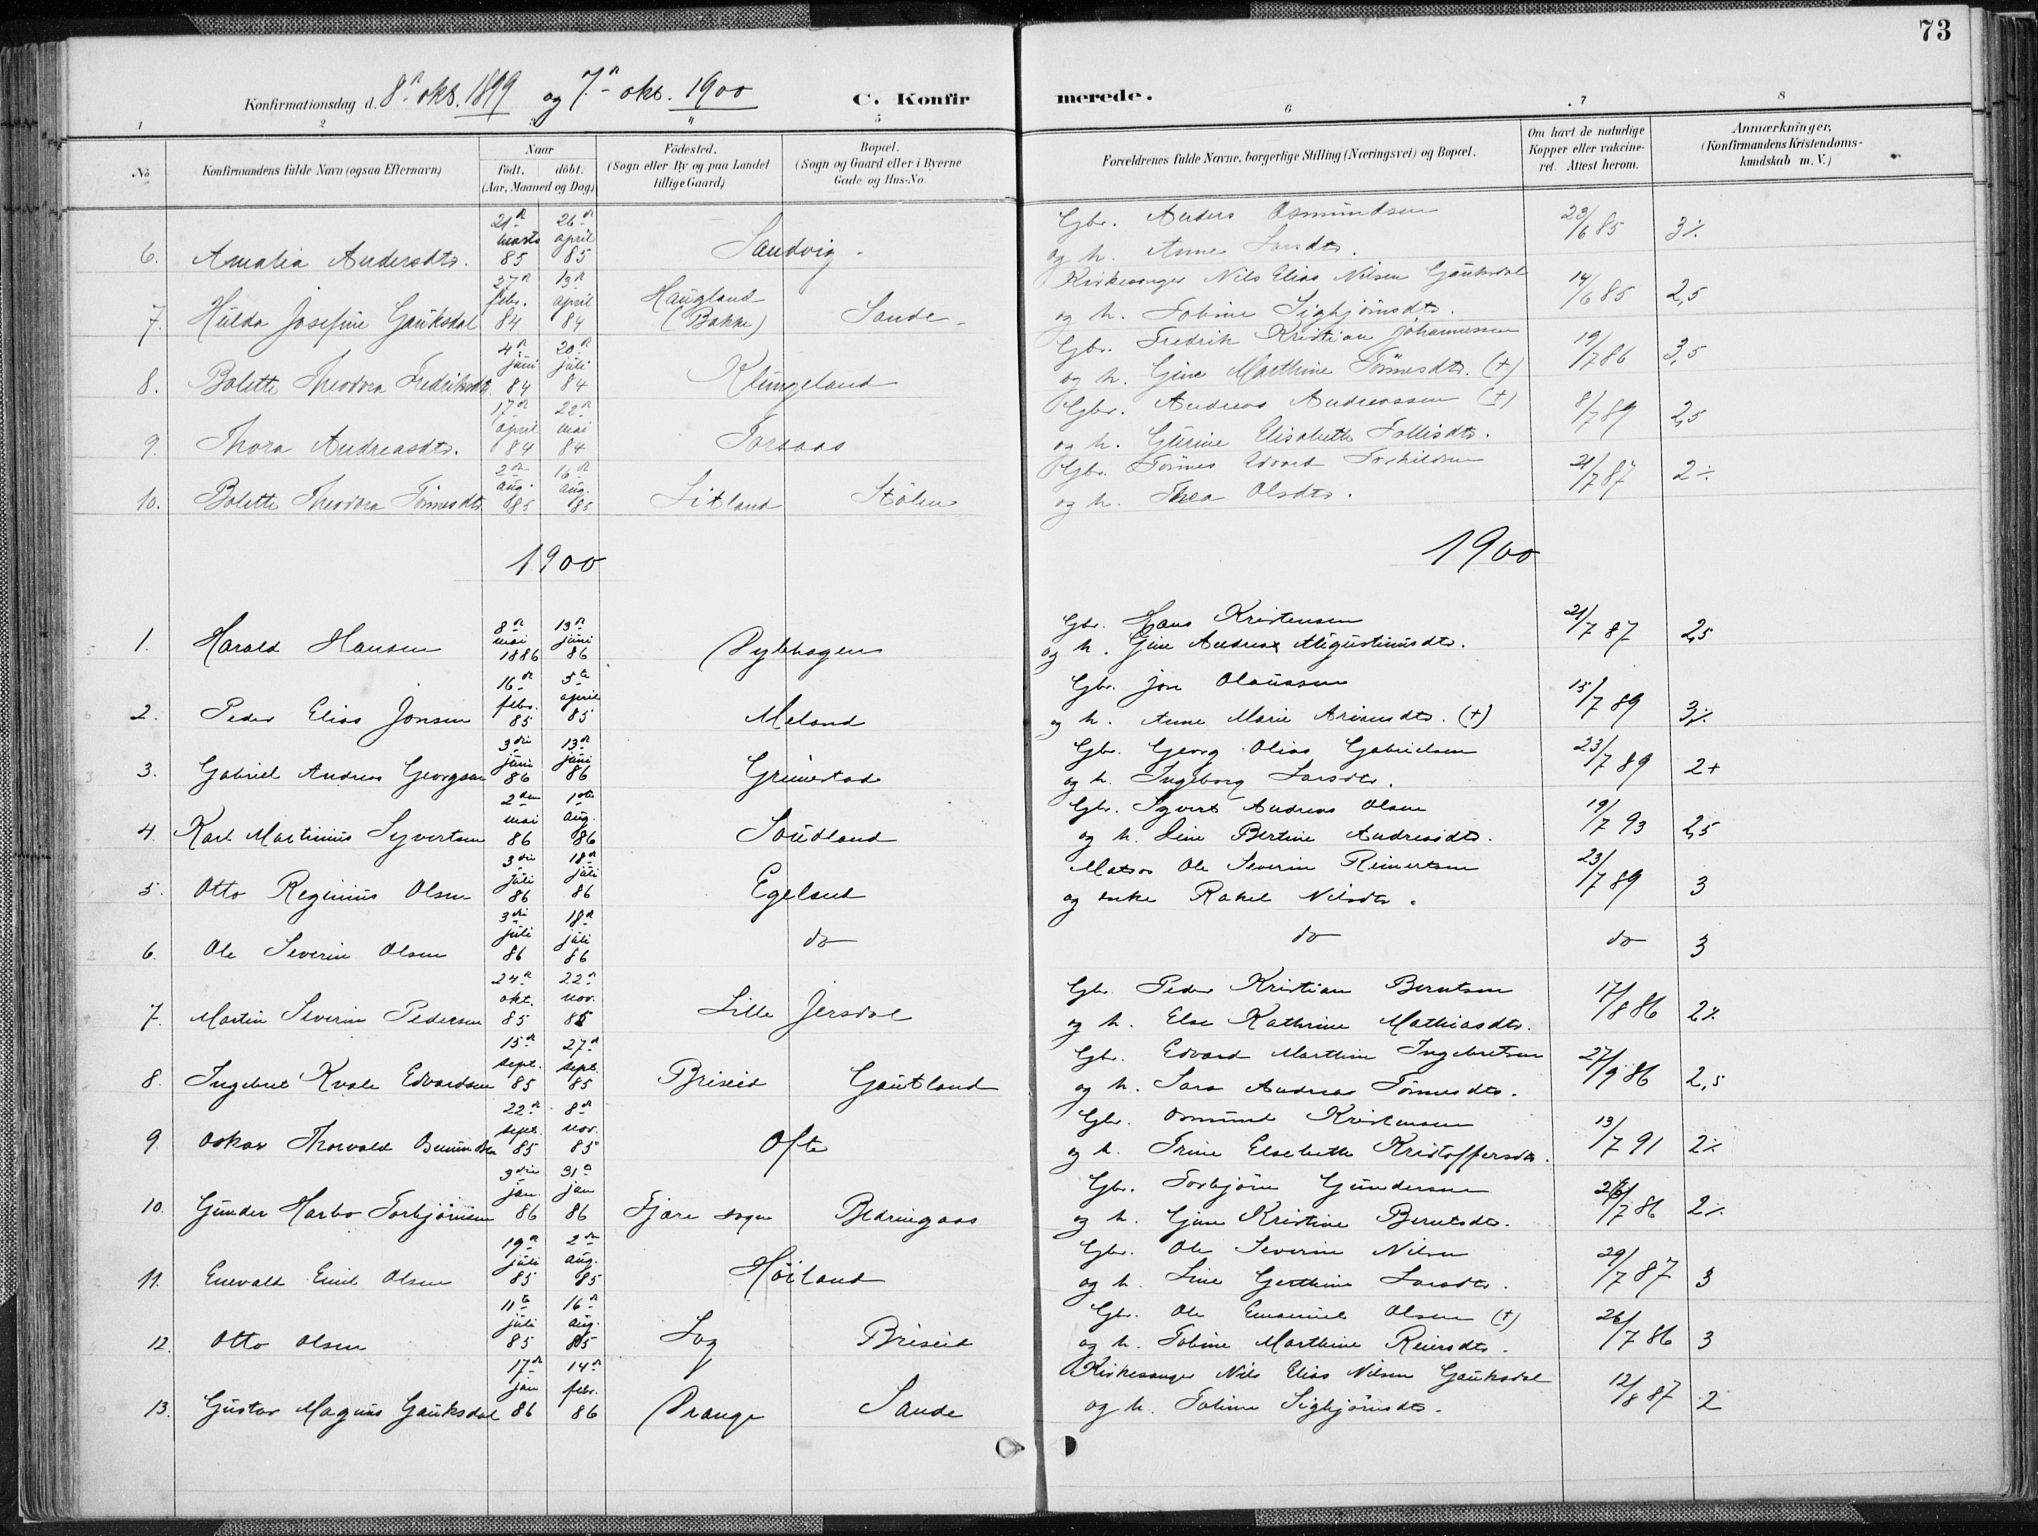 73
Konfirmationsdag d. 8de okt. 1899 og 7de okt. 1900 C. Konfirmerede.
1 2 3 4 5 6 7 8
No
Konfirmandens fulde Navn (ogsaa Efternavn)
Naar
født. døbt.
(Aar, Maaned og Dag)
Fødested.
(Sogn eller By og paa Landet
tillige Gaard)
Bopæl.
(Sogn og Gaard eller i Byerne
Gade og Hus-No.
Forældrenes fulde Navne, borgerlige Stilling (Næringsvei) og Bopæl.
Om havt de naturlige
Kopper eller vakcine-
ret. Attest herom.
Anmærkninger.
(Konfirmandens Kristendoms-
kundskab m. V.)
6. Amalia Andersdtr. 21de marts 85 26de april 85 Sandvig Gbr. Anders Osmundsen 23/6 85 3%
og h. Anne Larsdtr.
7. Hulda Josefine Gauksdal 27de febr. 84 13de april 84 Haugland (Bakke) Sande Kirkesanger Nils Elias Nilsen Gauksdal 14/6 85 2,5
og h. Tobine Sigbjørnsdtr.
8. Bolette Theodora Fredriksdtr. 4de juni 84 20de juli 84 Klungeland Gbr. Fredrik Kristian Johannessen 19/7 86 3,5
og h. Gine Marthine Tønnesdtr. (+)
9. Thora Andreasdtr. 17de april 84 22de mai 84 Torsaas Gbr. Andreas Andreassen (+) 8/7 89 2,5
og h. Gurine Elisabeth Tollisdtr.
10. Bolette Theodora Tønnesdtr. 2den aug. 85 16de aug. 85 Litland Stølen Gbr. Tønnes Edvard Torkildsen 21/7 87 2%
og h. Thea Olsdtr.
1900 1900
1. Harald Hansen 8de mai 1886 13de juni 86 Dybhagen Gbr. Hans Kristensen 21/7 87 2,5
og h. Gine Andrea Augustinusdtr.
2. Peder Elias Jonsen 16de febr. 85 5te april 85 Meland Gbr. Jon Olaussen 15/7 89 3%
og h. Anne Marie Arnesdtr. (+)
3. Gabriel Andreas Georgsen 3die juni 86 13de juni 86 Grimestad Gbr. Georg Olias Gabrielsen 23/7 89 2+
og h. Ingeborg Larsdtr.
4. Karl Martinius Syvertsen 2den mai 86 1ste aug. 86 Soudland Gbr. Syvert Andreas Olsen 19/7 93 2,5
og h. Line Bertine Andreasdtr.
5. Otto Reginius Olsen 3die juli 86 18de juli 86 Egeland Matros Ole Severin Reinertsen 23/7 89 3
og enke Rakel Nilsdtr.
6. Ole Severin Olsen 3die juli 86 18de juli 86 do do do 3
7. Martin Severin Pedersen 24de okt. 85 22de nov. 85 Lille Jersdal Gbr. Peder Kristian Berntsen 17/8 86 2%
og h. Else Kathrine Mathiasdtr.
8. Ingebret Kvale Edvardsen 15de sept. 85 27de sept. 85 Briseid Gautland Gbr. Edvard Marthin Ingebretsen 27/9 86 2,5
og h. Sara Andrea Tønnesdtr.
9. Oskar Thorvald Osmundsen 22de sept. 85 8de nov. 85 Ofte Gbr. Osmund Kristensen 13/7 91 2%
og h. Trine Elsebeth Kristoffersdtr.
10. Gunder Marbo Torbjørnsen 3die jan. 86 31te jan 86 Fjære sogn Gbr. Torbjørn Gundersen /7 86 2%
og h. Gine Kristine Berntsdtr.
11. Enevald Emil Olsen 19de juli 85 2den aug. 85 Høiland Gbr. Ole Severin Nilsen 29/7 87 3
og h. Line Gerthine Larsdtr.
12. Otto Olsen 11te juli 85 16de aug. 85 Log Briseid Gbr. Ole Emanuel Olsen (+) 26/7 86 3
og h. Tobine Marthine Reiersdtr.
13. Gustav Magnus Gauksdal 17de jan 86 14de febr. 86 Prange Sande Kirkesanger Nils Elias Nilsen Gauksdal 12/8 87 2
og h. Tobine Sigbjørnsdtr.